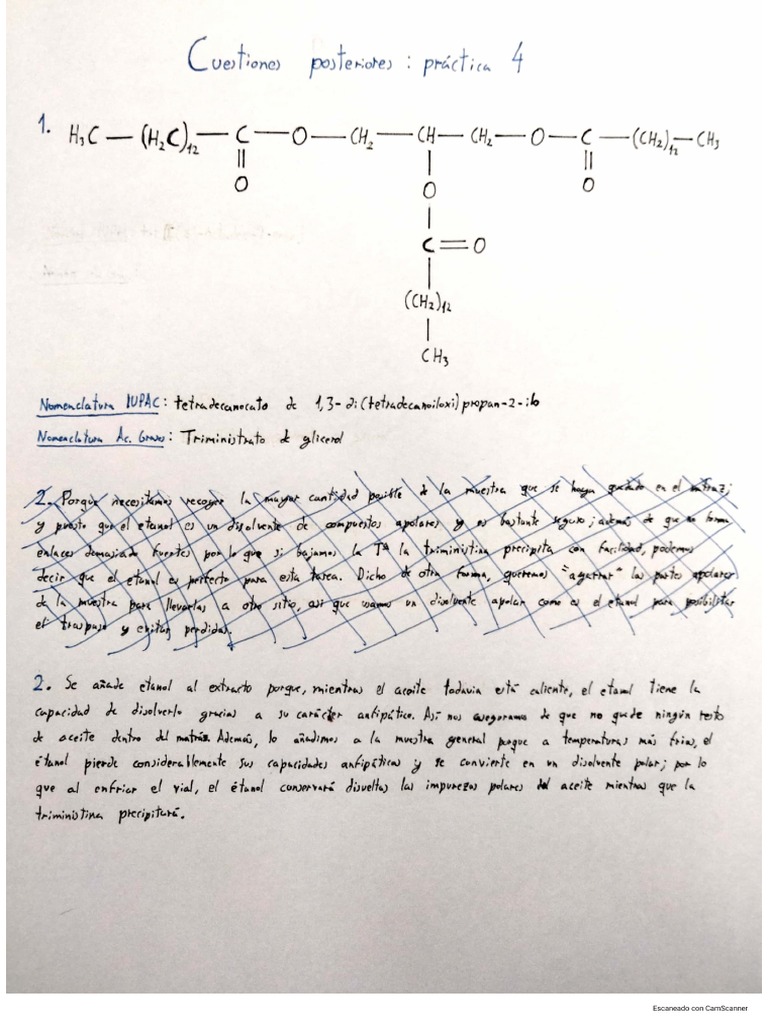 Cuestiones posteriores: práctica 4
1. H3C — (H2C)12 — C — O — CH2 — CH — CH2 — O — C — (CH2)12 — CH3
O O O
C = O
(CH2)12
CH3
Nomenclatura IUPAC: tetradecanoato de 1,3-di(tetradecanoiloxi)propan-2-ilo
Nomenclatura Ac. Grasos: Triministrato de glicerol
2. Porque necesitamos recoger la mayor cantidad posible de la muestra que se haya quedado en el matraz;
y puesto que el etanol es un disolvente de compuestos apolares y es bastante seguro; además de que no forma
enlaces demasiado fuertes por lo que si bajamos la Tª la triministina precipita con facilidad, podemos
decir que el etanol es perfecto para esta tarea. Dicho de otra forma, queremos "agarrar" las partes apolares
de la muestra para llevarlas a otro sitio, así que usamos un disolvente apolar como es el etanol para posibilitar
el traspaso y evitar perdidas.
2. Se añade etanol al extracto porque, mientras el aceite todavía está caliente, el etanol tiene la
capacidad de disolverlo gracias a su carácter anfipático. Así nos aseguramos de que no quede ningún resto
de aceite dentro del matrás. Además, lo añadimos a la muestra general porque a temperaturas más frias, el
étanol pierde considerablemente sus capacidades anfipáticas y se convierte en un disolvente polar; por lo
que al enfriar el vial, el étanol conservará disueltas las impurezas polares del aceite mientras que la
triministina precipitará.
Escaneado con CamScanner